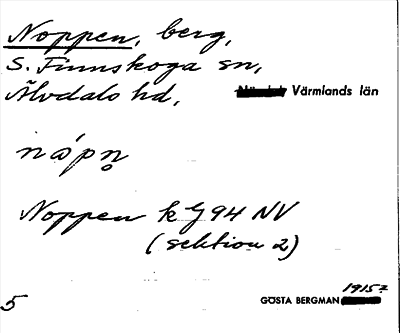 Noppen, berg,
S. Finnskoga sn,
Älvdals hd, Värmlands län
nápn̥
Noppen k Ij 94 NV
(sektion 2)
1915?
5 GÖSTA BERGMAN